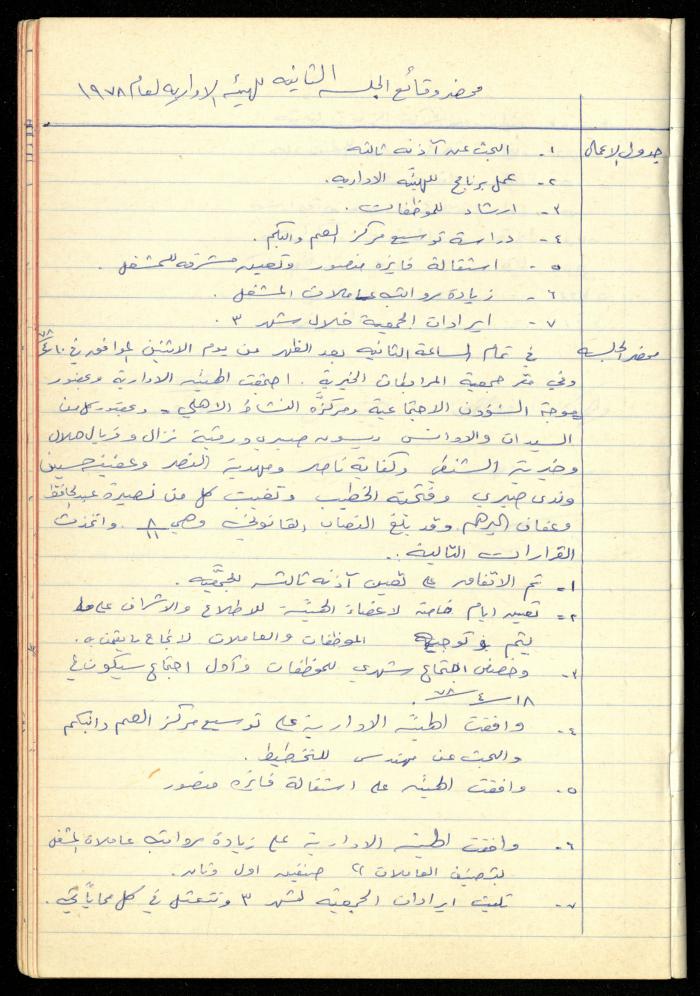 محضر وقائع الجلسه الثانيه للهيئه الاداريه لعام ١٩٧٨
جدول الاعمال
١- البحث عن آذنه ثالثه
٢- عمل برنامج للهيئه الاداريه.
٣- ارشاد للموظفات.
٤- دراسة توسيع مركز الصم والبكم.
٥- استقالة فايزه منصور وتعيين مشرفه للمشغل.
٦- زيادة رواتب عاملات المشغل.
٧- ايرادات الجمعية خلال شهر ٣.
محضر الجلسة
في تمام الساعة الثانيه بعد الظهر من يوم الاثنين الموافق في ١٠/٤/٧٨
وفي مقر جمعية المرابطات الخيرية. اجتمعت الهيئه الادارية وبحضور
موجهة الشؤون الاجتماعية ومركزة النشاط الاهلي. وبحضور كل من
السيدات والاوانس ميسون صبري ورقية نزال وفريال هلال
وخيرية الشنطي وكفاية ناصر ومهدية النصر وعفيفة حسين
وندى صبري وفتحية الخطيب وتغيبت كل من نصيرة عبدالحافظ
وعفاف وقد بلغ النصاب القانوني وهي ٨/١١ واتخذت
القرارات التالية..
١- تم الاتفاق على تعيين آذنه ثالثه للجمعيه.
٢- تعيين ايام خاصة لاعضاء الهيئة للاطلاع والاشراف على ما
يتم وتوجيه الموظفات والعاملات لانجاح ما يقمن به.
٣- وخصص اجتماع شهري للموظفات واول اجتماع سيكون في
١٨/٤/٧٨.
٤- وافقت الهيئه الادارية على توسيع مركز الصم والبكم
والبحث عن مهندس للتخطيط.
٥- وافقت الهيئه على استقالة فايزه منصور
٦- وافقت الهيئه الادارية على زيادة رواتب عاملات المشغل
بتصنيف العاملات الى صنفين اول وثان.
٧- تليت ايرادات الجمعيه لشهر ٣ وتتمثل في كل مما يأتي.